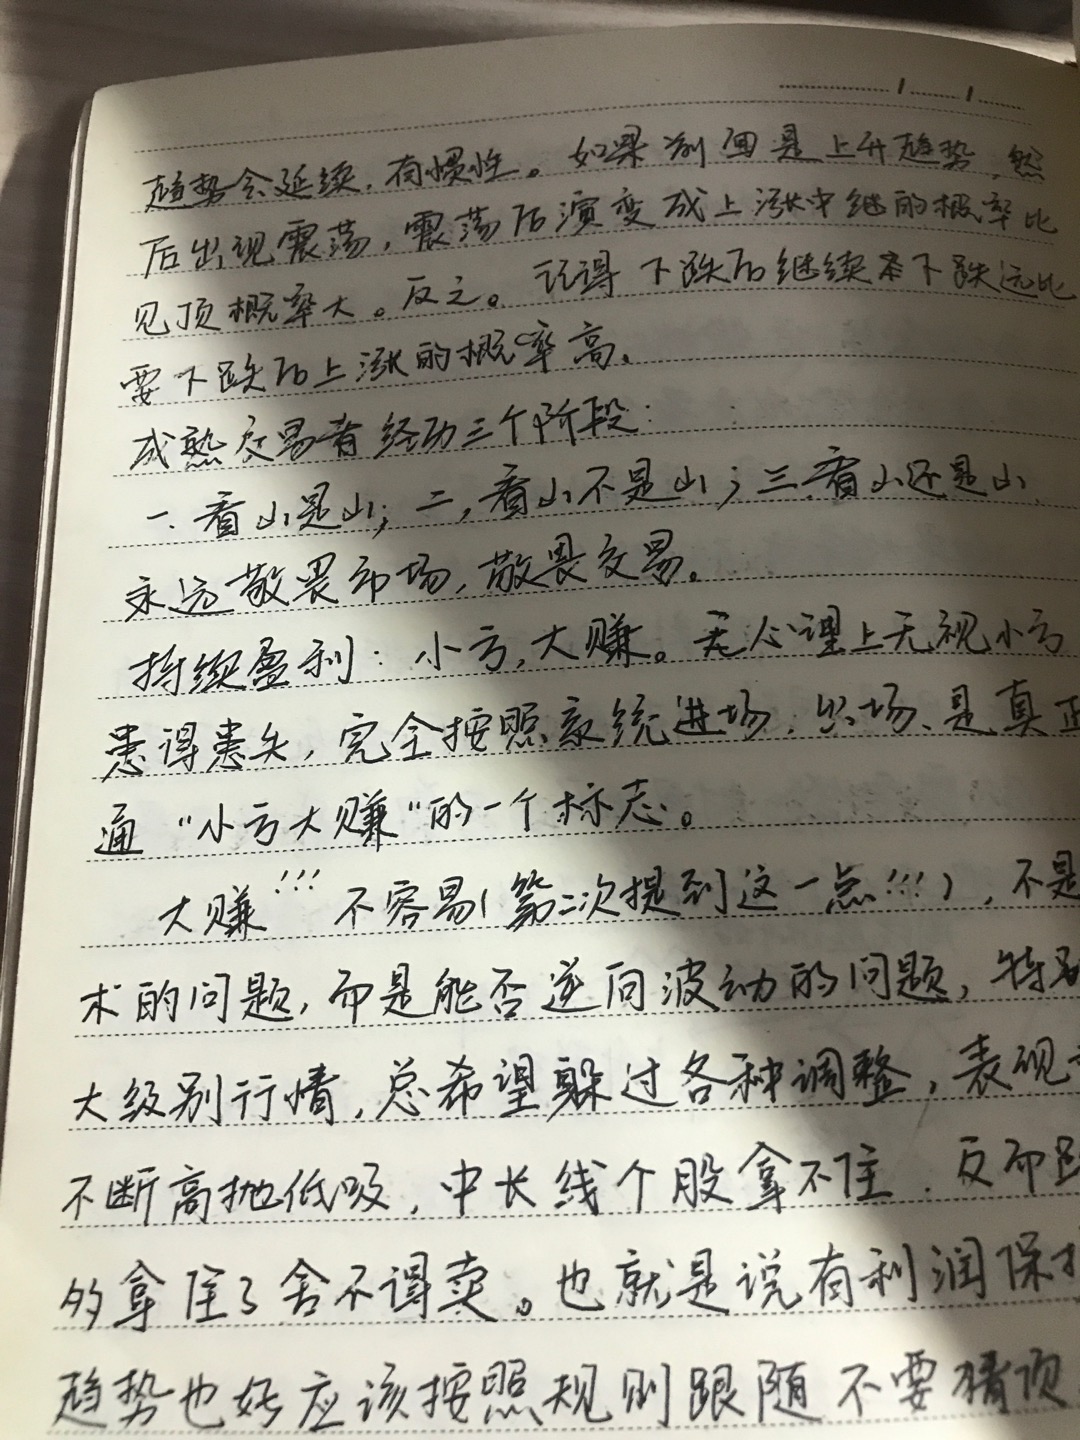 趋势会延续，有惯性。如果前面是上升趋势，然
后出现震荡，震荡后演变成上涨中继的概率比
见顶概率大。反之。记得下跌后继续下跌远比
要下跌后上涨的概率高。
成熟交易者经历三个阶段：
一、看山是山；二，看山不是山；三.看山还是山
永远敬畏市场，敬畏交易。
持续盈利：小亏，大赚。无心理上无视小亏
患得患失，完全按照系统进场，出场、是真正
通“小亏大赚”的一个标志。
大赚!!!不容易(第二次提到这一点!!!)，不是
术的问题，而是能否逆向波动的问题，特别
大级别行情，总希望躲过各种调整，表现
不断高抛低吸，中长线个股拿不住．反而跌
的拿住了舍不得卖。也就是说有利润保护
趋势也好应该按照规则跟随不要猜顶